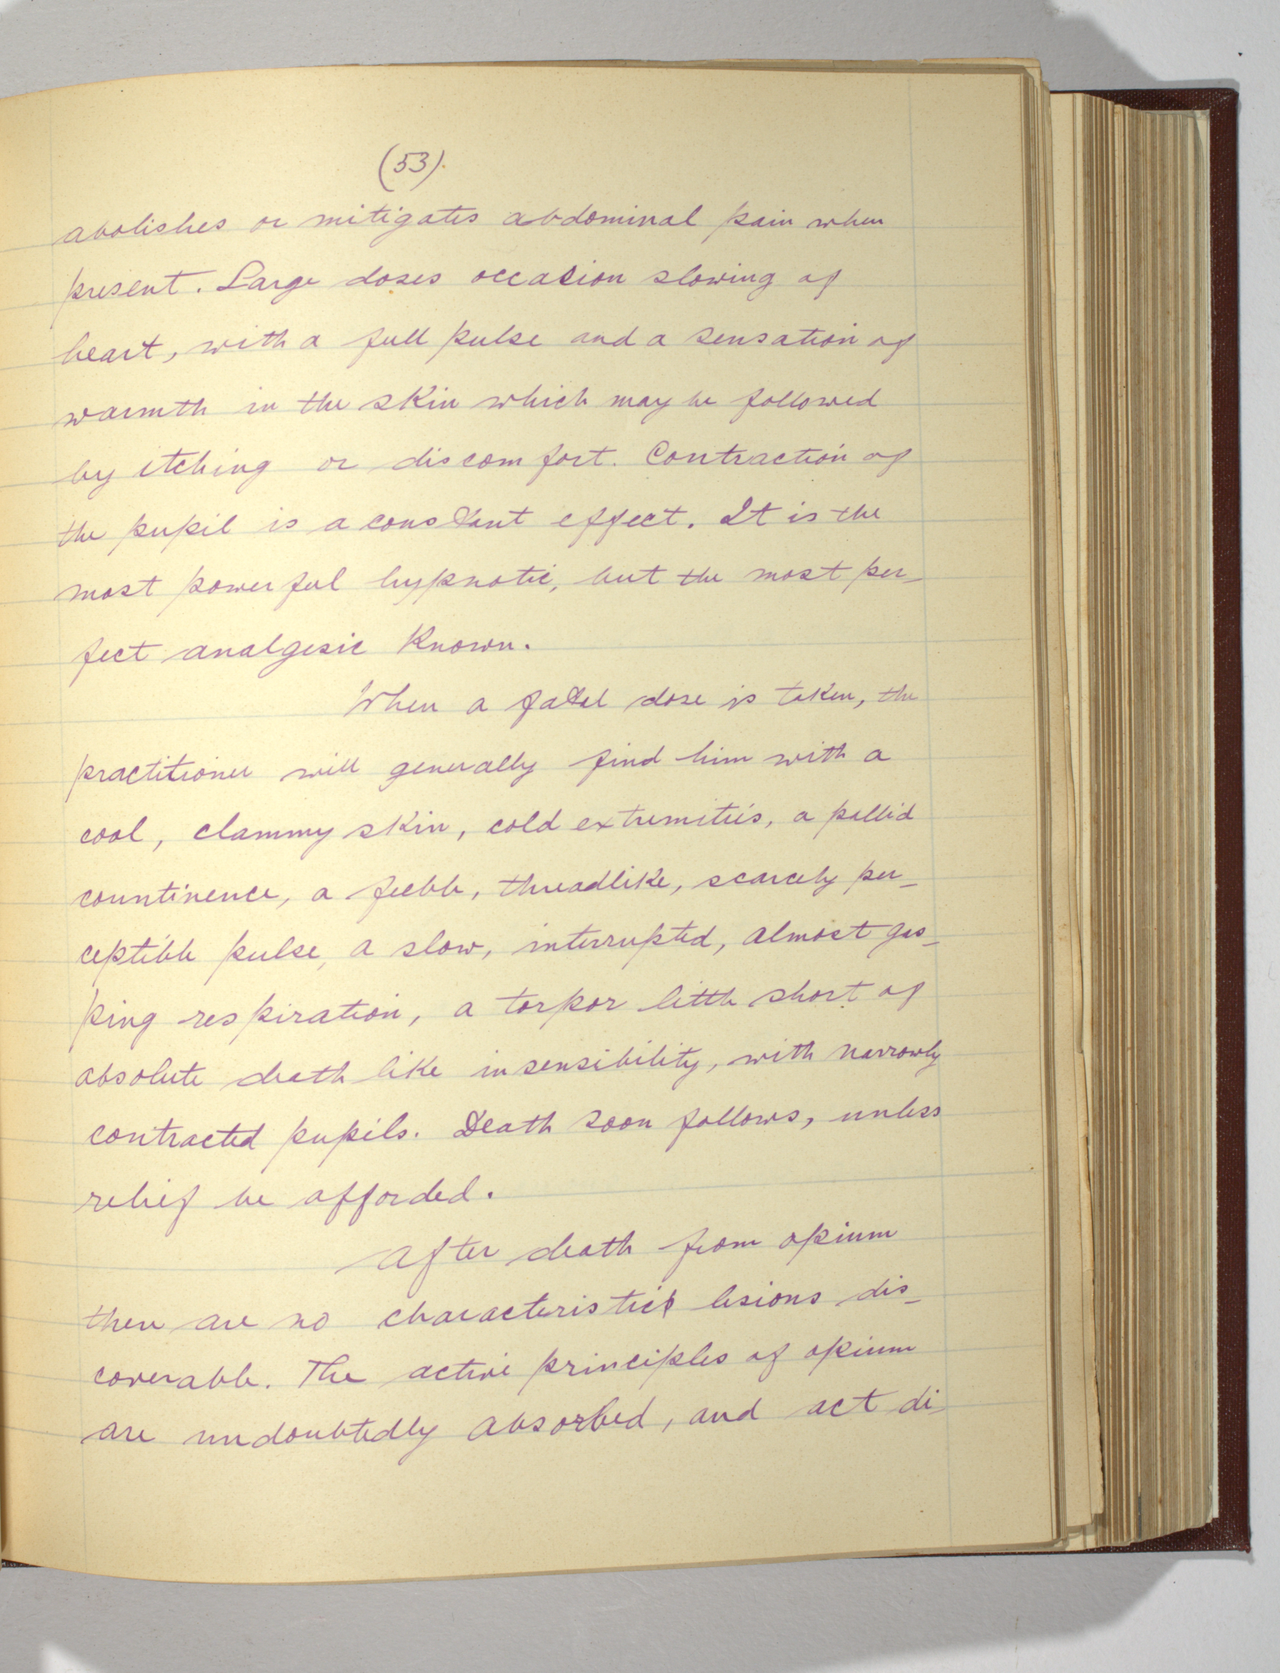 (53).
abolishes or mitigates abdominal pain when
present. Large doses occasion slowing of
heart, with a full pulse and a sensation of
warmth in the skin which may be followed
by itching or discomfort. Contraction of
the pupil is a constant effect. It is the
most powerful hypnotic, but the most per-
fect analgesic known.
When a fatal dose is taken, the
practitioner will generally find him with a
cool, clammy skin, cold extremities, a pallid
countinence, a feeble, threadlike, scarcely per-
ceptible pulse, a slow, interrupted, almost gas-
ping respiration, a torpor little short of
absolute death like insensibility, with narrowly
contracted pupils. Death soon follows, unless
relief be afforded.
After death from opium
there are no characteristic lesions dis-
coverable. The active principles of opium
are undoubtedly absorbed, and act di-